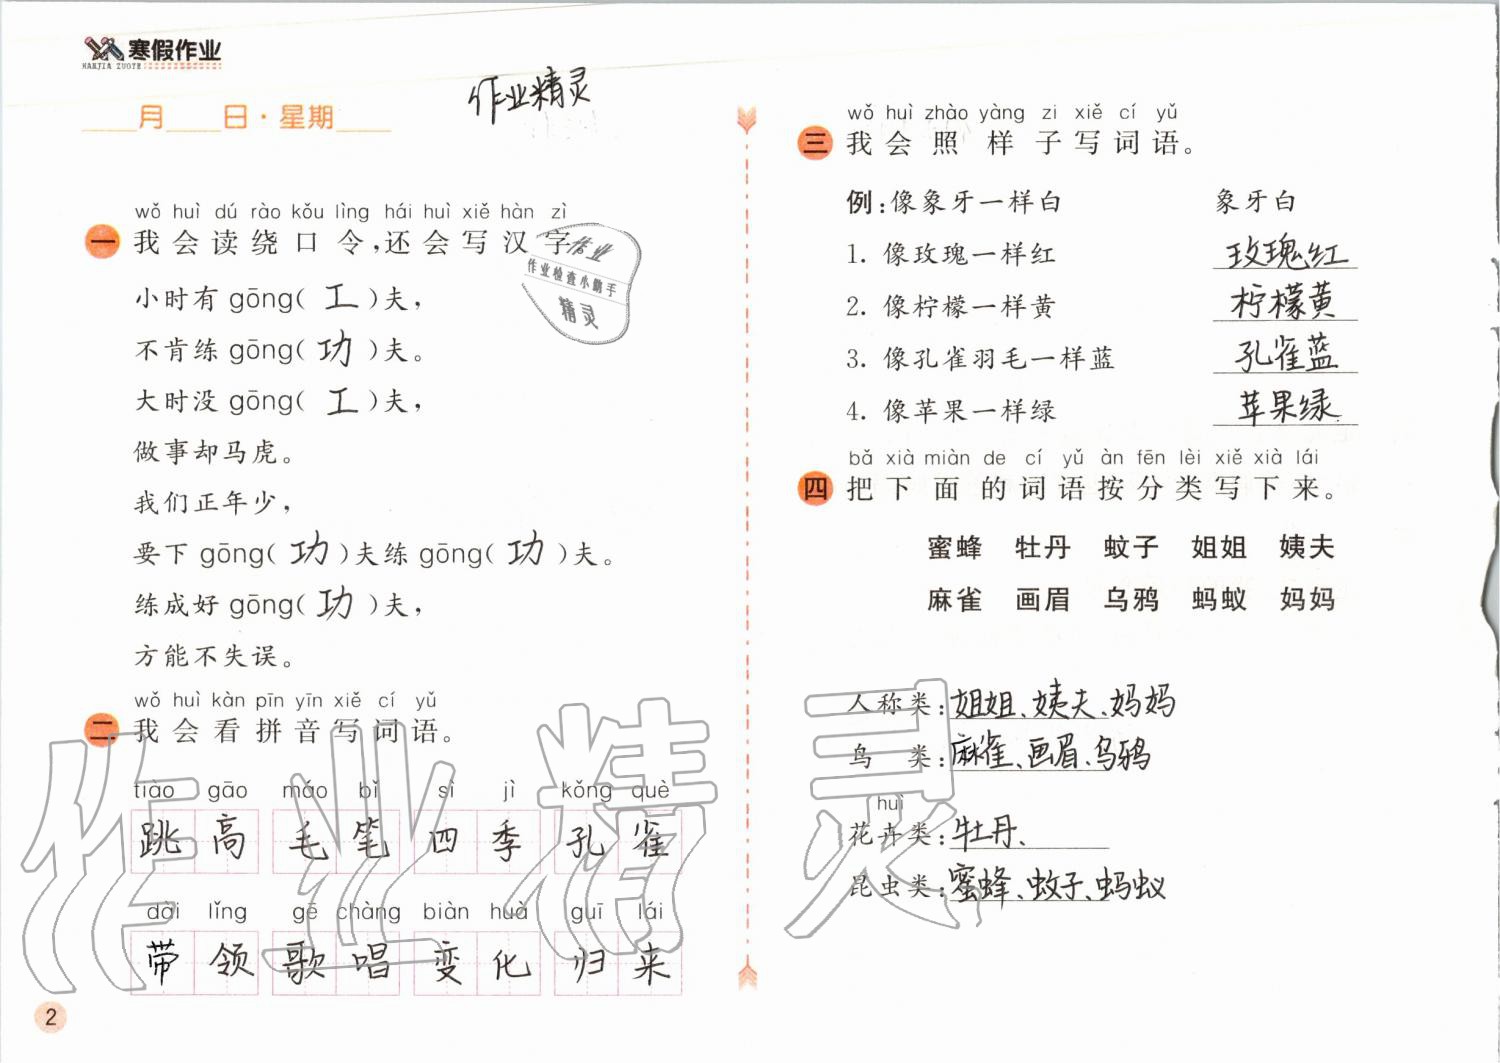 寒假作业
HANJIA ZUOYE
作业精灵
月 日·星期
wǒ huì dú rào kǒu lìng hái huì xiě hàn zì
一 我会读绕口令,还会写汉字
作业
作业检查小助手
精灵
小时有gōng( 工 )夫，
不肯练gōng( 功 )夫。
大时没gōng( 工 )夫，
做事却马虎。
我们正年少，
要下gōng( 功 )夫练gōng( 功 )夫。
练成好gōng( 功 )夫，
方能不失误。
wǒ huì kàn pīn yīn xiě cí yǔ
二 我会看拼音写词语。
tiào gāo máo bǐ sì jì kǒng què
跳高 毛笔 四季 孔雀
dài lǐng gē chàng biàn huà guī lái
带领 歌唱 变化 归来
2
wǒ huì zhào yàng zi xiě cí yǔ
三 我会照样子写词语。
例:像象牙一样白 象牙白
1. 像玫瑰一样红 玫瑰红
2. 像柠檬一样黄 柠檬黄
3. 像孔雀羽毛一样蓝 孔雀蓝
4. 像苹果一样绿 苹果绿
bǎ xià miàn de cí yǔ àn fēn lèi xiě xià lái
四 把下面的词语按分类写下来。
蜜蜂 牡丹 蚊子 姐姐 姨夫
麻雀 画眉 乌鸦 蚂蚁 妈妈
人称类:姐姐、姨夫、妈妈
鸟 类:麻雀、画眉、乌鸦
huì
花卉类:牡丹、
昆虫类:蜜蜂、蚊子、蚂蚁
作业精灵